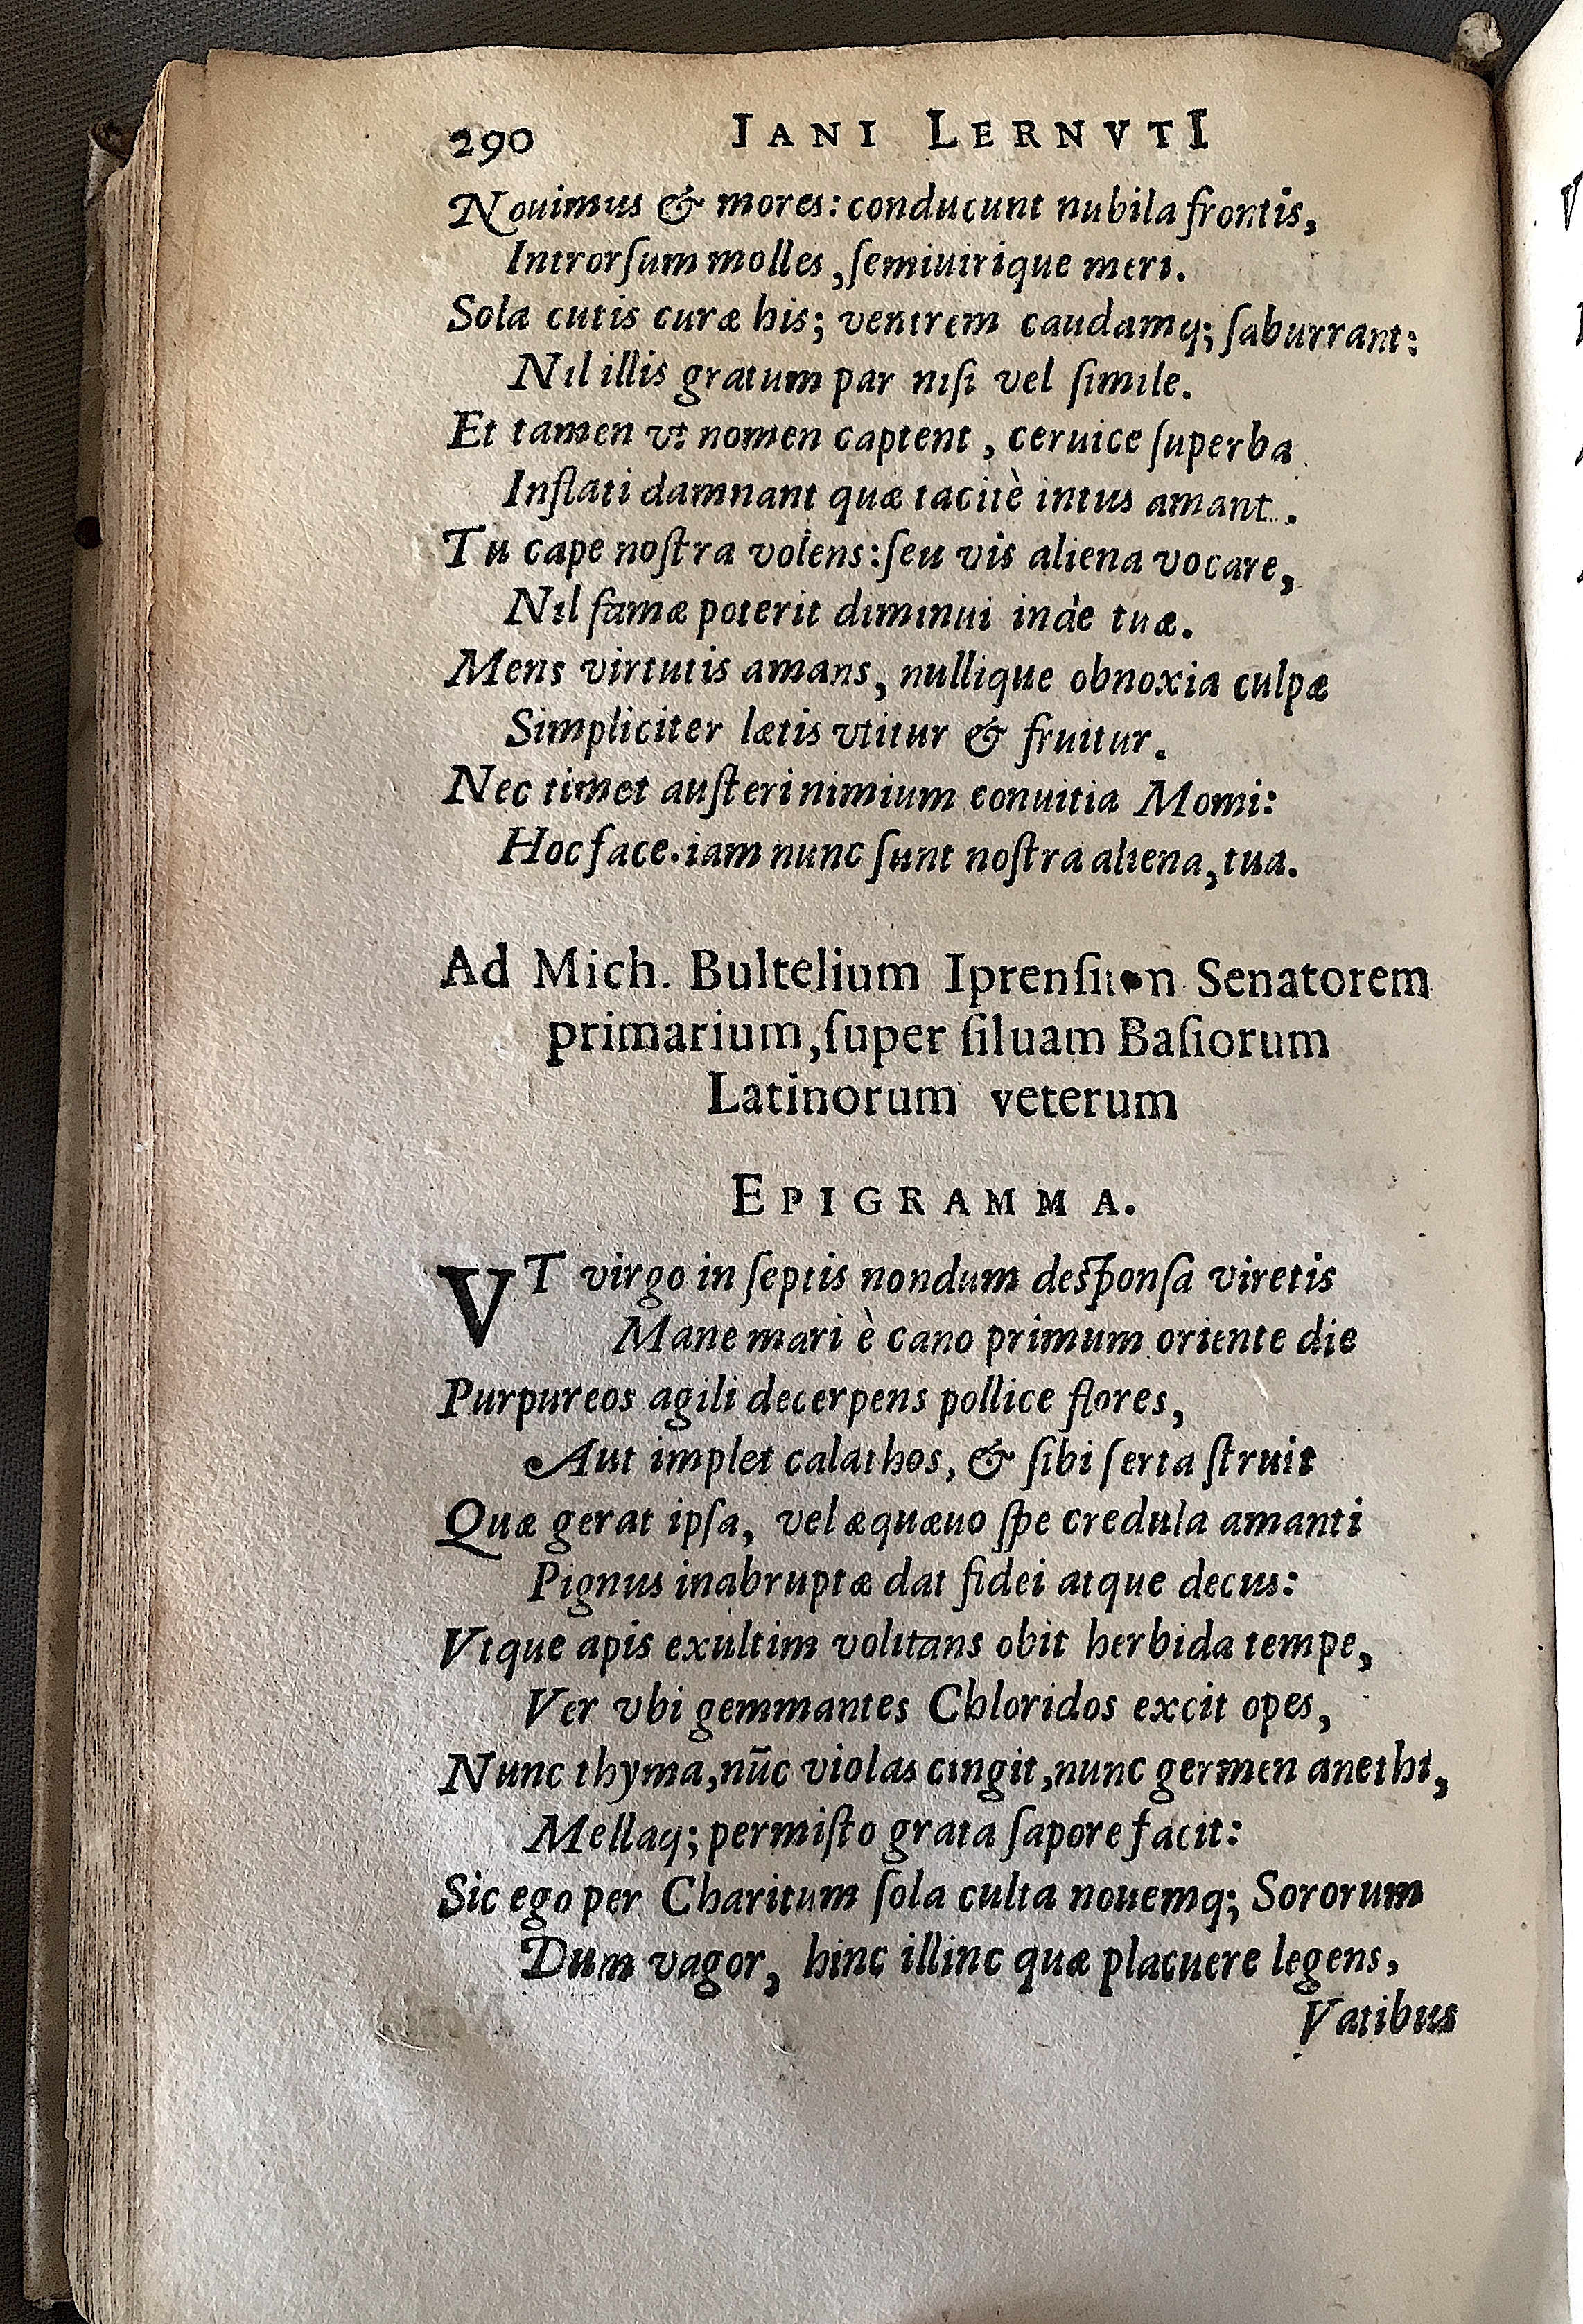 290 IANI LERNVTI
Nouimus & mores: conducunt nubila frontis,
Introrſum molles, ſemiuirique meri.
Sola cutis curæ his; ventrem caudamq; ſaburrant:
Nil illis gratum par niſi vel ſimile.
Et tamen vt nomen captent, ceruice ſuperba
Inflati damnant quæ tacitè intus amant.
Tu cape noſtra volens: ſeu vis aliena vocare,
Nil famæ poterit diminui inde tuæ.
Mens virtutis amans, nullique obnoxia culpæ
Simpliciter lætis vtitur & fruitur.
Nec timet auſteri nimium conuitia Momi:
Hoc face. iam nunc ſunt noſtra aliena, tua.
Ad Mich. Bultelium Senatorem
primarium, ſuper ſiluam Baſiorum
Latinorum veterum
EPIGRAMMA.
VT virgo in ſeptis nondum deſponſa viretis
Mane mari è cano primum oriente die
Purpureos agili decerpens pollice flores,
Aut implet calathos, & ſibi ſerta ſtruit
Quæ gerat ipſa, vel æquæuo ſpe credula amanti
Pignus inabruptæ dat fidei atque decus:
Vtque apis exultim volitans obit herbida tempe,
Ver vbi gemmantes Chloridos excit opes,
Nunc thyma, nūc violas cingit, nunc germen anethi,
Mellaq; permiſto grata ſapore facit:
Sic ego per Charitum ſola culta nouemq; Sororum
Dum vagor, hinc illinc quæ placuere legens,
Vatibus